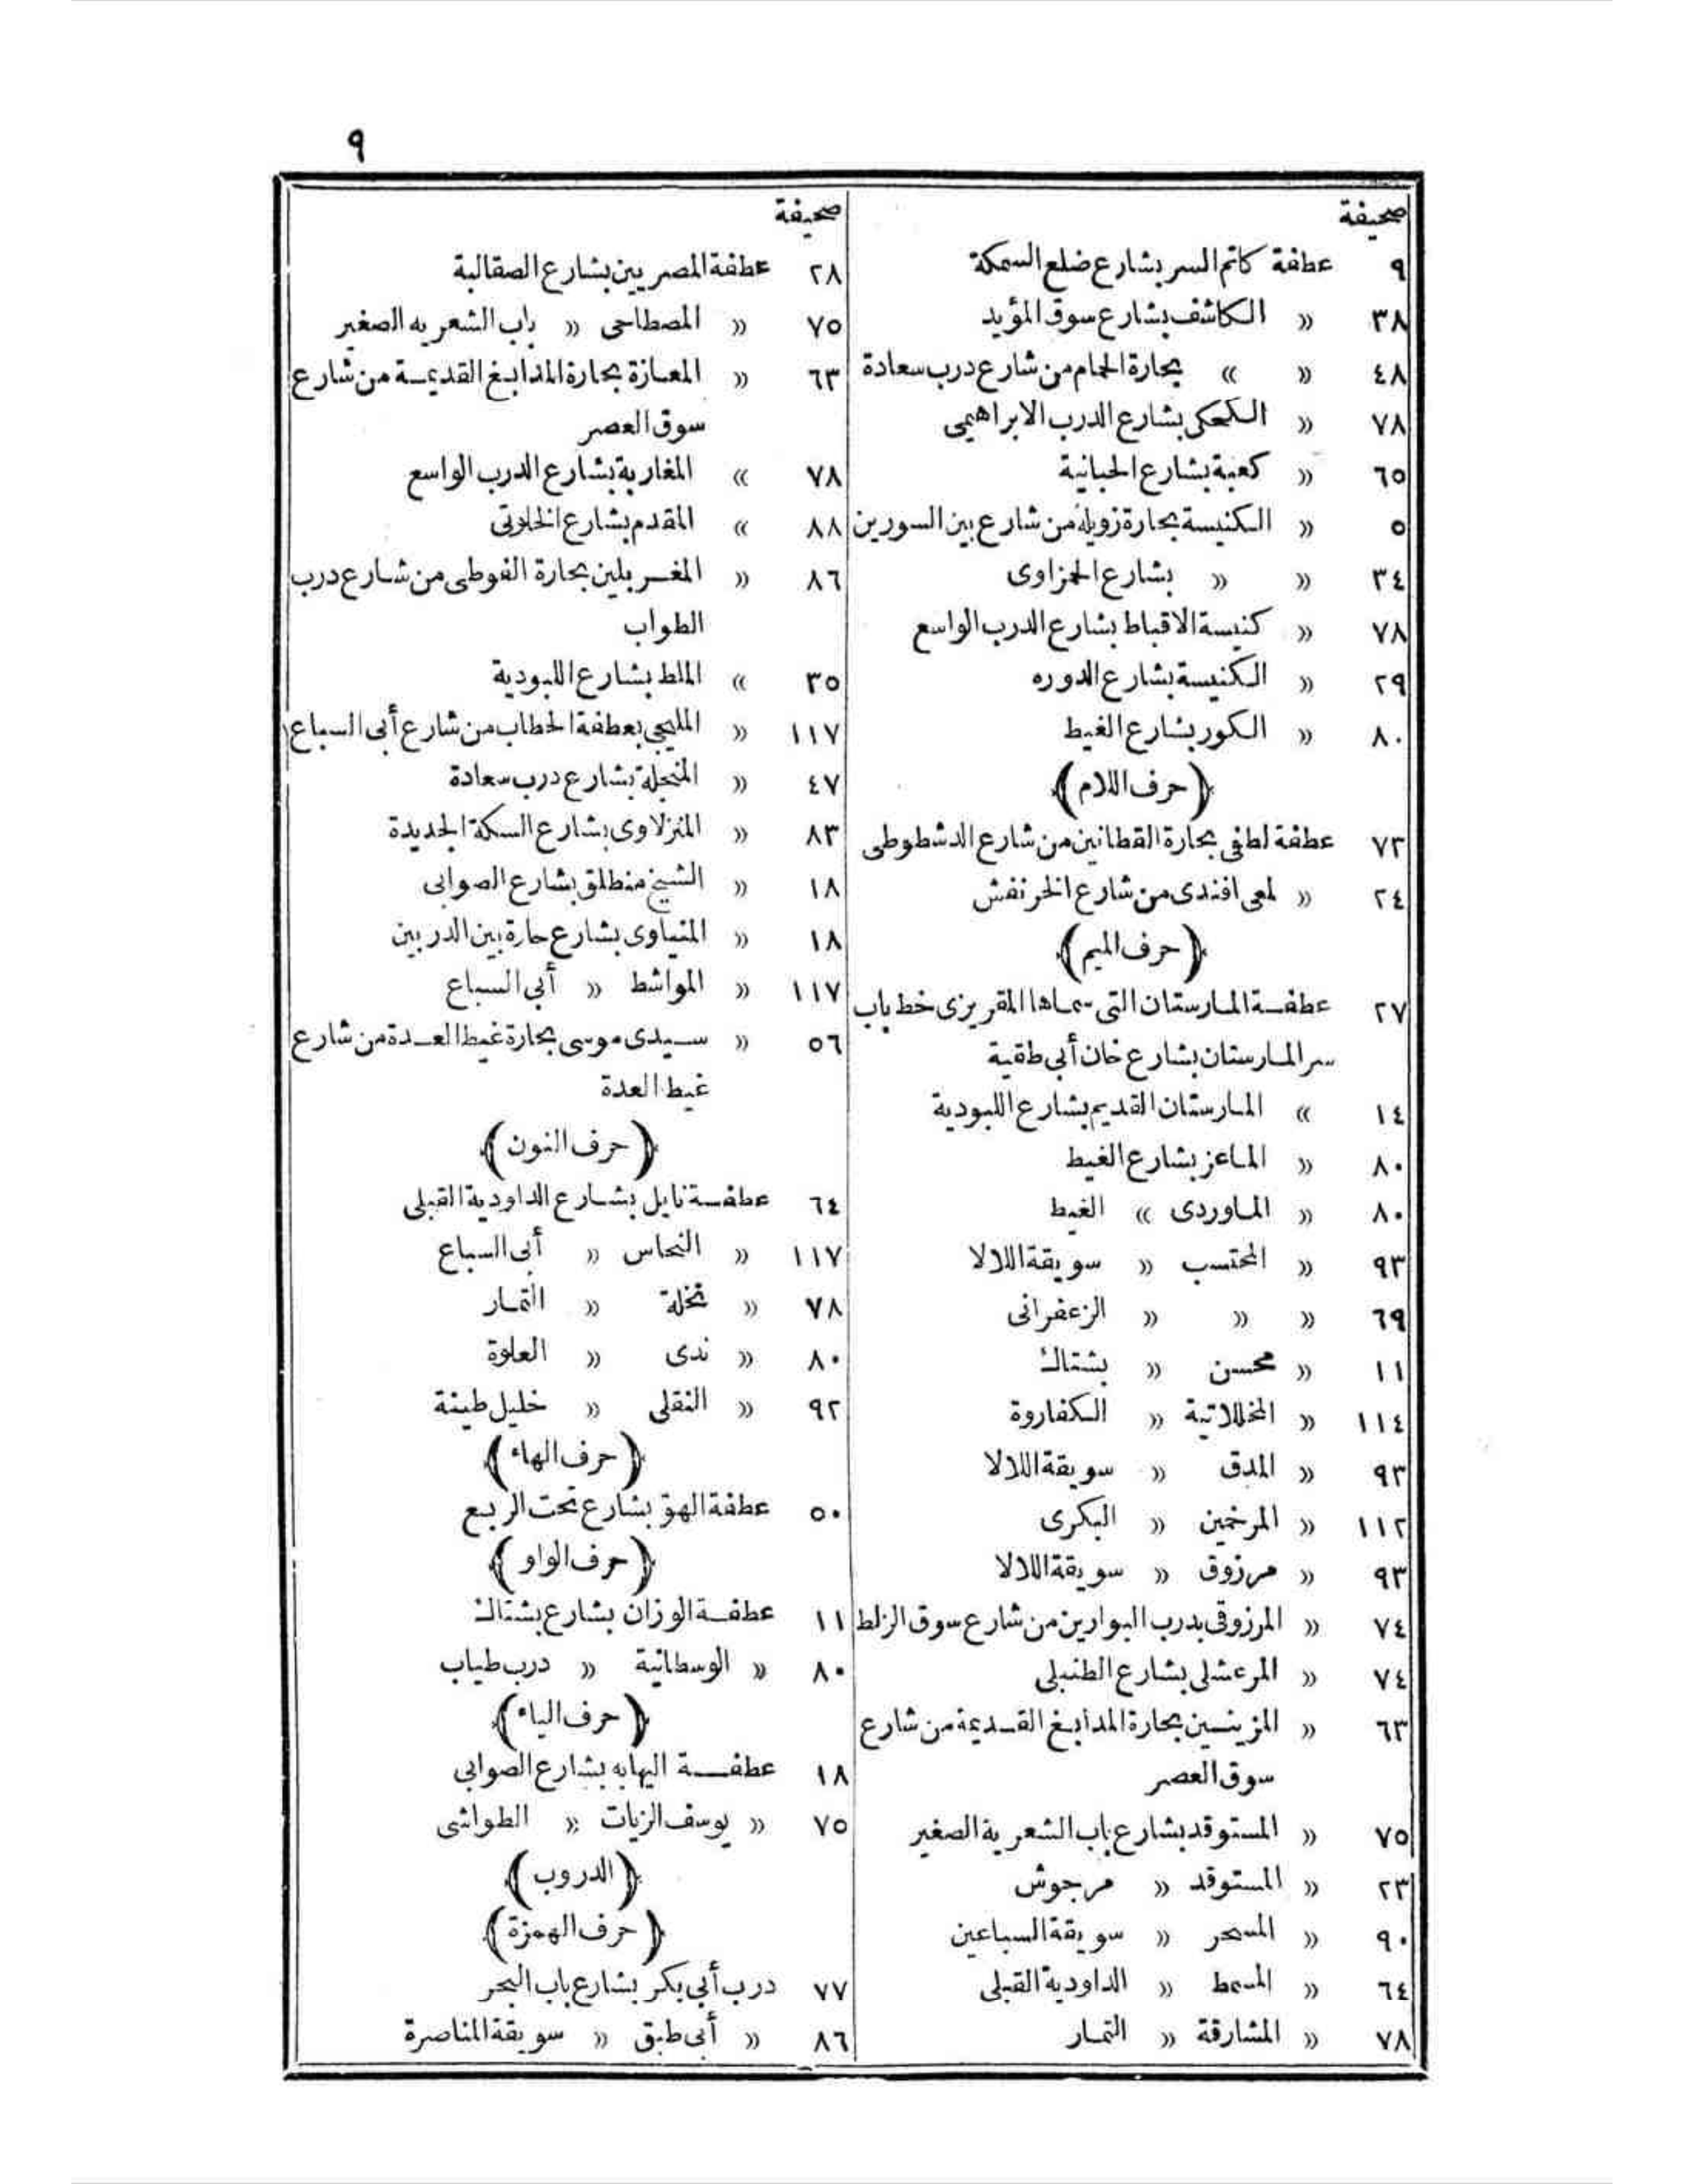 ٩
صحيفة
٩ عطفة كاتم السر بشارع ضلع السمكة
٣٨ « الكاشف بشارع سوق المؤيد
٤٨ « » بحارة الحمام من شارع درب سعادة
٧٨ « الكعكى بشارع الدرب الابراهيمى
٦٥ « كعبة بشارع الحبانية
٥ « الكنيسة بحارة زويلة من شارع بين السورين
٣٤ « « بشارع الحمزاوى
٧٨ « كنيسة الاقباط بشارع الدرب الواسع
٢٩ « الكنيسة بشارع الدوره
٨٠ « الكور بشارع الغيط
﴿حرف اللام﴾
٧٣ عطفة لطفى بحارة القطانين من شارع الدشطوطى
٢٤ « لمعى افندى من شارع الخرنفش
﴿حرف الميم﴾
٢٧ عطفة المارستان التى سماها المقريزى خط باب
سر المارستان بشارع خان أبى طقية
١٤ » المارستان القديم بشارع اللبودية
٨٠ « الماعز بشارع الغيط
٨٠ « الماوردى » الغيط
٩٣ « المحتسب « سويقة اللالا
٦٩ « « « الزعفرانى
١١ « محسن « بشتاك
١١٤ « المخللاتية « الكفاروة
٩٣ « المدق « سويقة اللالا
١١٢ « المرخمين « البكرى
٩٣ « مرزوق « سويقة اللالا
٧٤ « المرزوقى بدرب البوارين من شارع سوق الزلط
٧٤ « المرعشلى بشارع الطنبلى
٦٣ « المزينين بحارة المدابغ القديمة من شارع
سوق العصر
٧٥ « المستوقد بشارع باب الشعرية الصغير
٢٣ « المستوقد « مرجوش
٩٠ « المسحر « سويقة السباعين
٦٤ « المسمط « الداودية القبلى
٧٨ « المشارقة « التمار
صحيفة
٢٨ عطفة المصريين بشارع الصقالبة
٧٥ « المصطاحى « باب الشعريه الصغير
٦٣ « المعازة بحارة المدابغ القديمة من شارع
سوق العصر
٧٨ » المغاربة بشارع الدرب الواسع
٨٨ » المقدم بشارع الخلوتى
٨٦ « المغربلين بحارة الفوطى من شارع درب
الطواب
٣٥ » الملط بشارع اللبودية
١١٧ « المليجى بعطفة الحطاب من شارع أبى السباع
٤٧ « المنجلة بشارع درب سعادة
٨٣ « المنزلاوى بشارع السكة الجديدة
١٨ « الشيخ منطلق بشارع الصوابى
١٨ « المنياوى بشارع حارة بين الدربين
١١٧ « المواشط « أبى السباع
٥٦ « سيدى موسى بحارة غيط العدة من شارع
غيط العدة
﴿حرف النون﴾
٦٤ عطفة نايل بشارع الداودية القبلى
١١٧ « النحاس « أبى السباع
٧٨ « نخلة « التمار
٨٠ « ندى « العلوة
٩٢ « النقلى « خليل طينة
﴿حرف الهاء﴾
٥٠ عطفة الهوّ بشارع تحت الربع
﴿حرف الواو﴾
١١ عطفة الوزان بشارع بشتاك
٨٠ « الوسطانية « درب طياب
﴿حرف الياء﴾
١٨ عطفة اليهابه بشارع الصوابى
٧٥ « يوسف الزيات « الطواشى
﴿الدروب﴾
﴿حرف الهمزة﴾
٧٧ درب أبى بكر بشارع باب البحر
٨٦ « أبى طبق « سويقة المناصرة